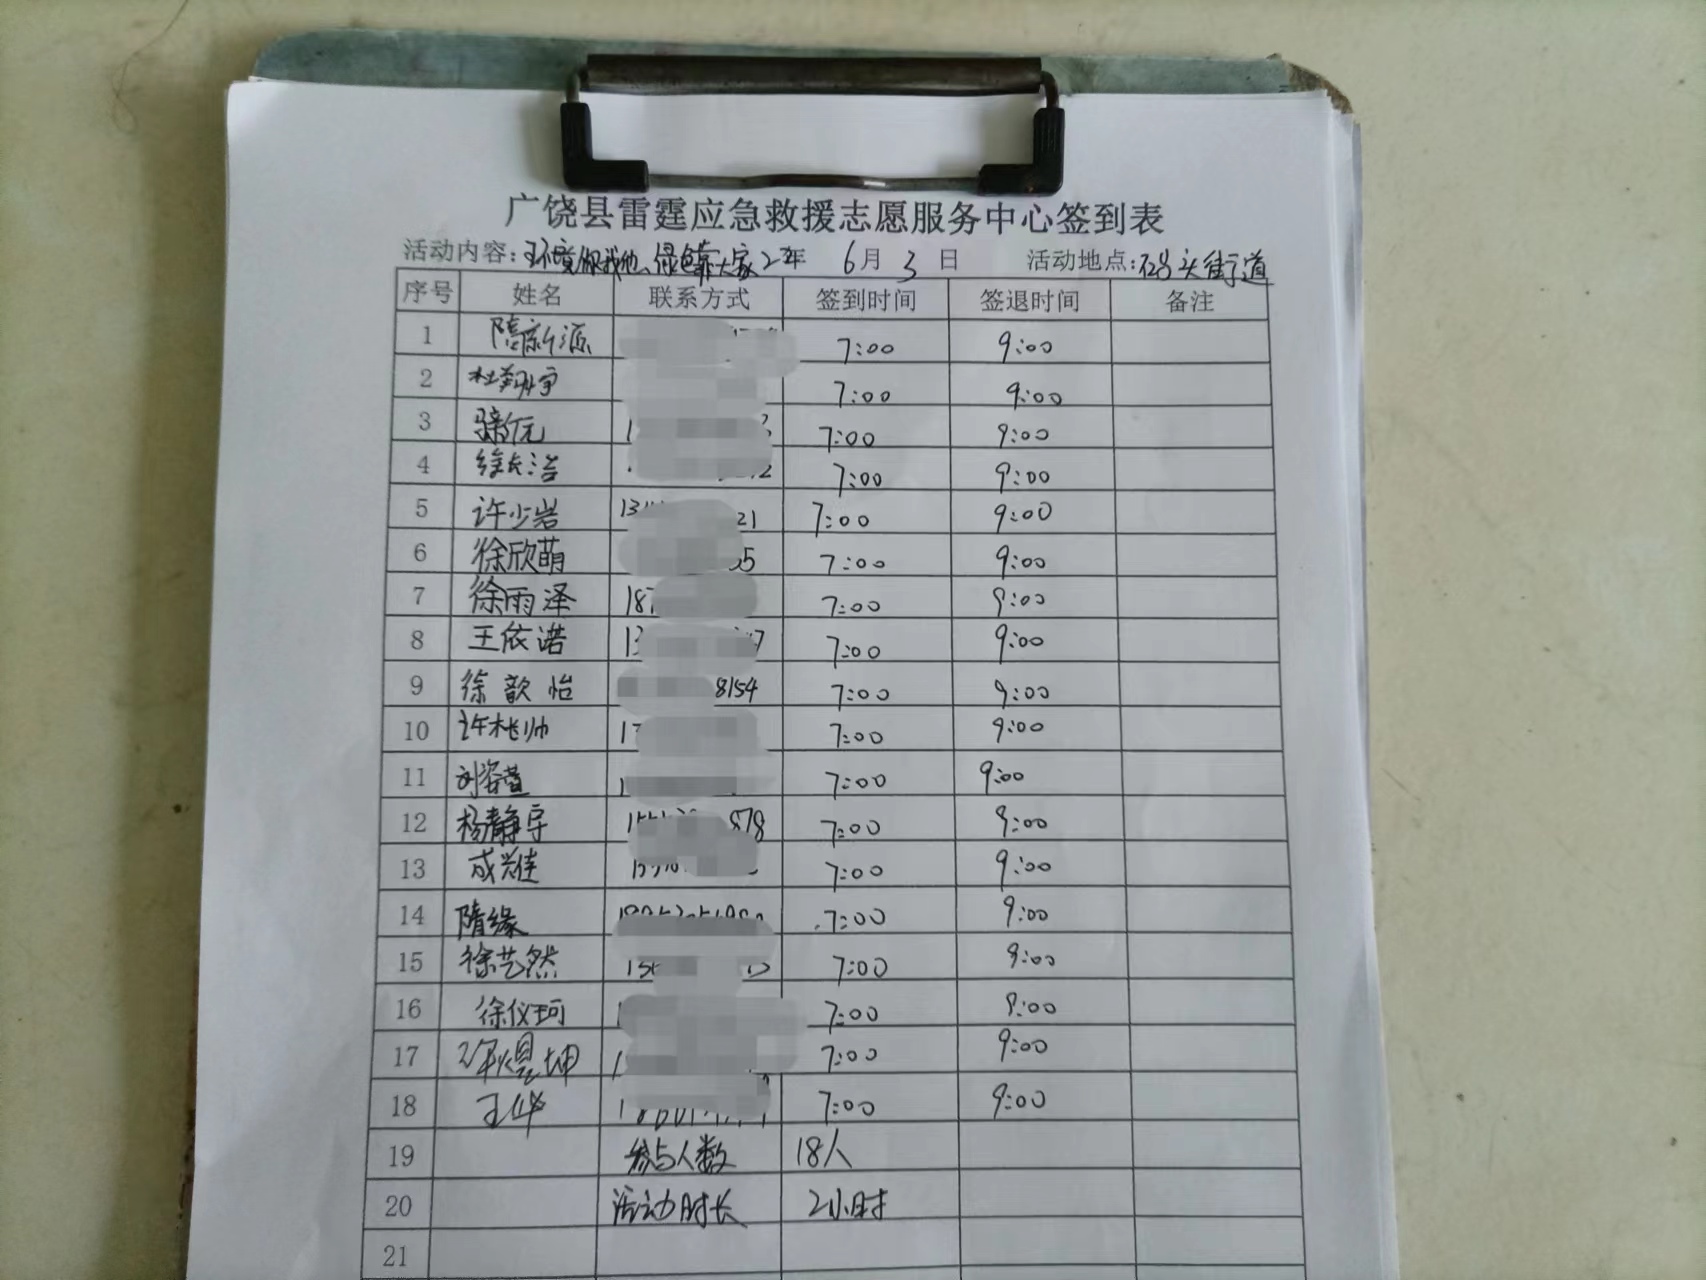 广饶县雷霆应急救援志愿服务中心签到表
活动内容：环境你我他、绿色靠大家 22年 6月 3 日 活动地点：码头街道
序号 姓名 联系方式 签到时间 签退时间 备注
1 隋新源 7:00 9:00
2 杜翔宇 7:00 9:00
3 7:00 9:00
4 徐长浩 7:00 9:00
5 许少岩 21 7:00 9:00
6 徐欣萌 55 7:00 9:00
7 徐雨泽 187 7:00 9:00
8 王依诺 13 7:00 9:00
9 徐歆怡 8154 7:00 9:00
10 许桃帅 7:00 9:00
11 刘姿萱 7:00 9:00
12 杨静宇 878 7:00 9:00
13 成耀佳 7:00 9:00
14 隋缘 7:00 9:00
15 徐艺然 7:00 9:00
16 徐仪珂 7:00 9:00
17 7:00 9:00
18 王华 7:00 9:00
19 参与人数 18人
20 活动时长 2小时
21